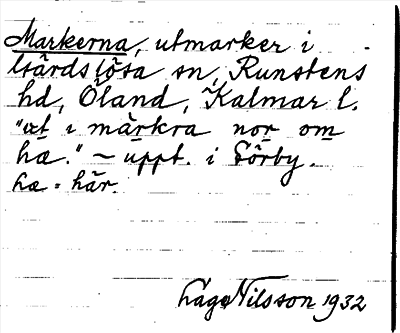 Markerna, utmarker i
Gärdslösa sn, Runstens
hd, Öland, Kalmar l.
"ut i märkra nor om
hæ." ~ uppt. i Sörby.
hæ = här.
Låge Nilsson 1932